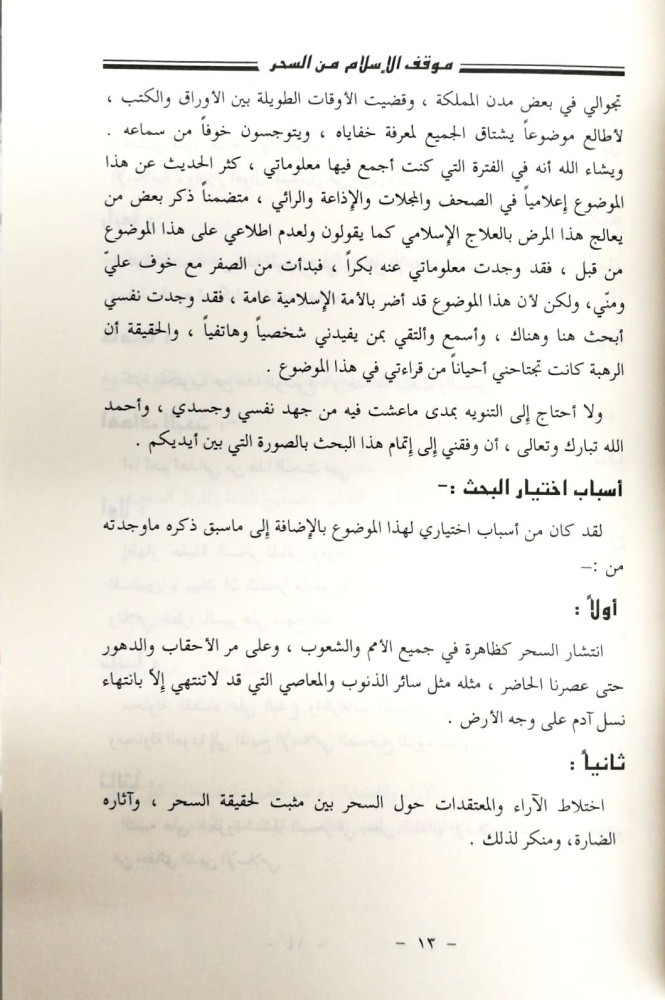 موقف الإسلام من السحر
تجوالي في بعض مدن المملكة ، وقضيت الأوقات الطويلة بين الأوراق والكتب ،
لأطالع موضوعاً يشتاق الجميع لمعرفة خفاياه ، ويتوجسون خوفاً من سماعه .
ويشاء الله أنه في الفترة التي كنت أجمع فيها معلوماتي ، كثر الحديث عن هذا
الموضوع إعلامياً في الصحف والمجلات والإذاعة والرائي ، متضمناً ذكر بعض من
يعالج هذا المرض بالعلاج الإسلامي كما يقولون ولعدم اطلاعي على هذا الموضوع
من قبل ، فقد وجدت معلوماتي عنه بكراً ، فبدأت من الصفر مع خوف عليّ
ومنّي، ولكن لأن هذا الموضوع قد أضر بالأمة الإسلامية عامة ، فقد وجدت نفسي
أبحث هنا وهناك ، وأسمع وألتقي بمن يفيدني شخصياً وهاتفياً ، والحقيقة أن
الرهبة كانت تجتاحني أحياناً من قراءتي في هذا الموضوع .
ولا أحتاج إلى التنويه بمدى ماعشت فيه من جهد نفسي وجسدي ، وأحمد
الله تبارك وتعالى ، أن وفقني إلى إتمام هذا البحث بالصورة التي بين أيديكم .
أسباب اختيار البحث :-
لقد كان من أسباب اختياري لهذا الموضوع بالإضافة إلى ماسبق ذكره ماوجدته
من :-
أولاً :
انتشار السحر كظاهرة في جميع الأمم والشعوب ، وعلى مر الأحقاب والدهور
حتى عصرنا الحاضر ، مثله مثل سائر الذنوب والمعاصي التي قد لاتنتهي إلاّ بانتهاء
نسل آدم على وجه الأرض .
ثانياً :
اختلاط الآراء والمعتقدات حول السحر بين مثبت لحقيقة السحر ، وآثاره
الضارة، ومنكر لذلك .
- ١٣ -